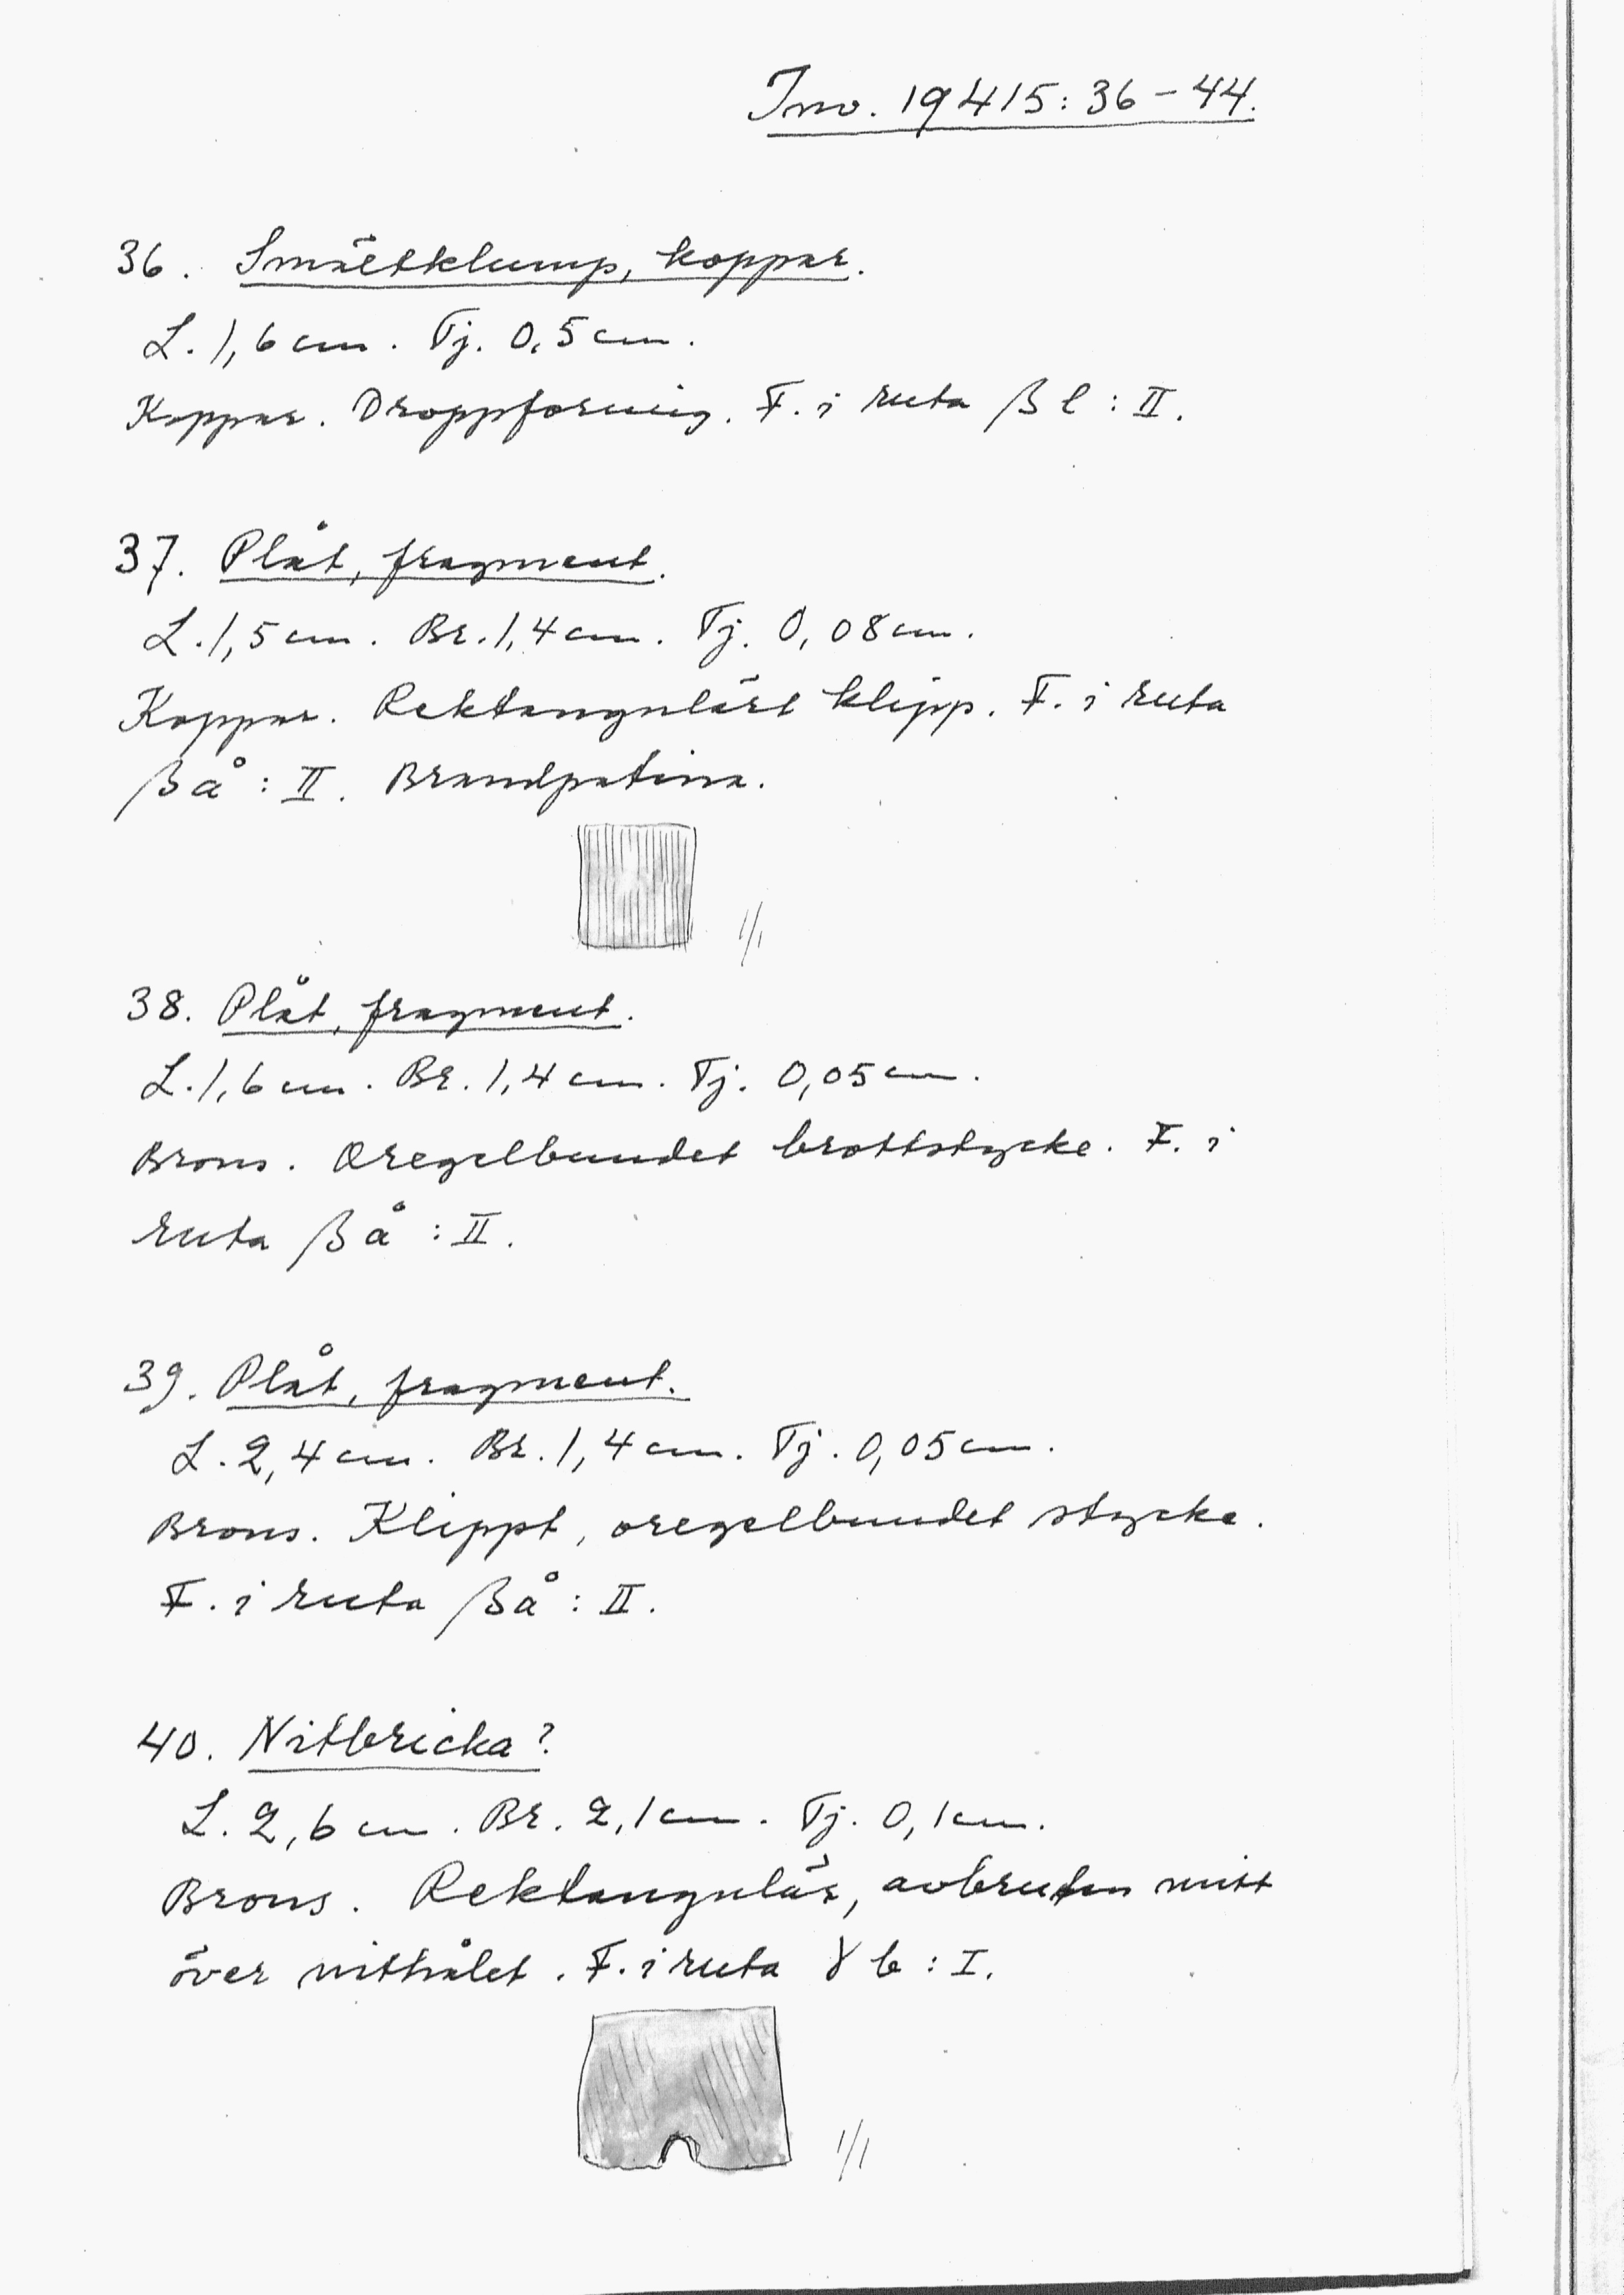 Inv. 19415: 36-44.
36. Smältklump, koppar.
L. 1,6 cm. Tj. 0,5 cm.
Koppar. Droppformig. F. i ruta β l : II.
37. Plåt, fragment.
L. 1,5 cm. Br. 1,4 cm. Tj. 0,08 cm.
Koppar. Rektangulärt klipp. F. i ruta
β å : II. Brandpatina.
1/1
38. Plåt, fragment.
L. 1,6 cm. Br. 1,4 cm. Tj. 0,05 cm.
Brons. Oregelbundet brottstycke. F. i
ruta β å : II.
39. Plåt, fragment.
L. 2,4 cm. Br. 1,4 cm. Tj. 0,05 cm.
Brons. Klippt, oregelbundet stycke.
F. i ruta β å : II.
40. Nitbricka?
L. 2,6 cm. Br. 2,1 cm. Tj. 0,1 cm.
Brons. Rektangulär, avbruten mitt
över nithålet. F. i ruta γ b : I.
1/1